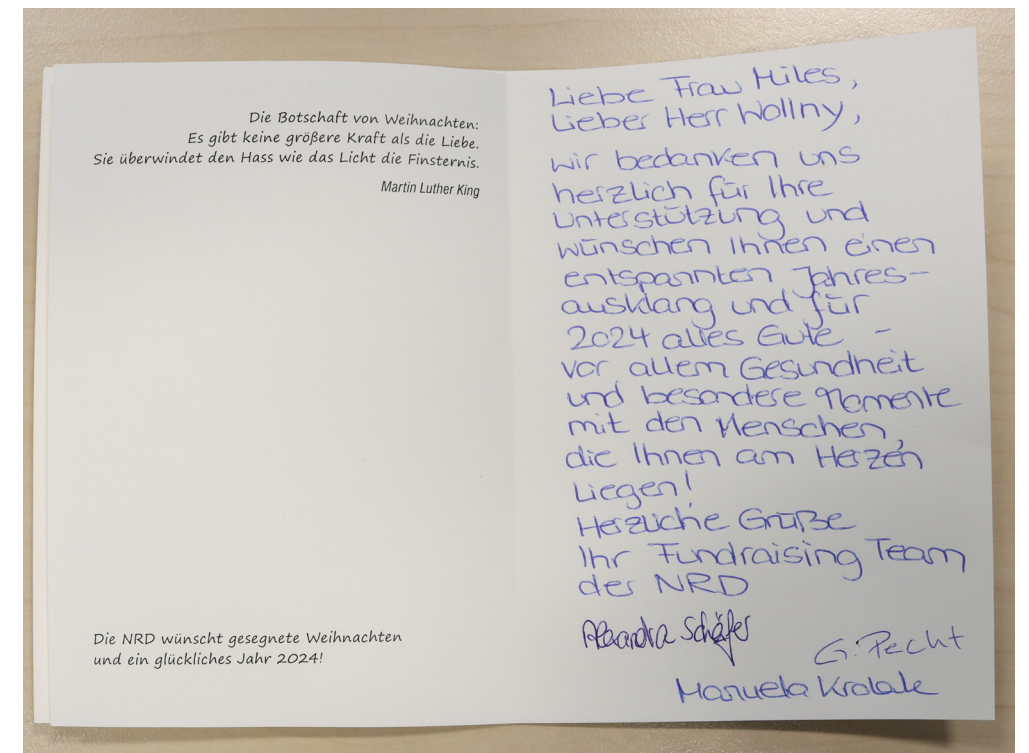 Die Botschaft von Weihnachten:
Es gibt keine größere Kraft als die Liebe.
Sie überwindet den Hass wie das Licht die Finsternis.
Martin Luther King
Die NRD wünscht gesegnete Weihnachten
und ein glückliches Jahr 2024!
Liebe Frau Miles,
Lieber Herr Wollny,
wir bedanken uns
herzlich für Ihre
Unterstützung und
wünschen Ihnen einen
entspannten Jahres-
ausklang und für
2024 alles Gute –
vor allem Gesundheit
und besondere Momente
mit den Menschen,
die Ihnen am Herzen
Liegen!
Herzliche Grüße
Ihr Fundraising Team
der NRD
Alexandra Schäfer
G. Pecht
Manuela